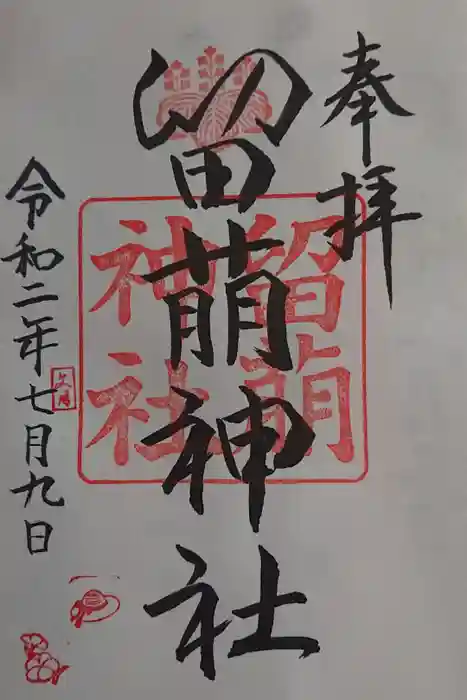 奉拝
留萌神社
留萌
神社
令和二年七月九日
文月